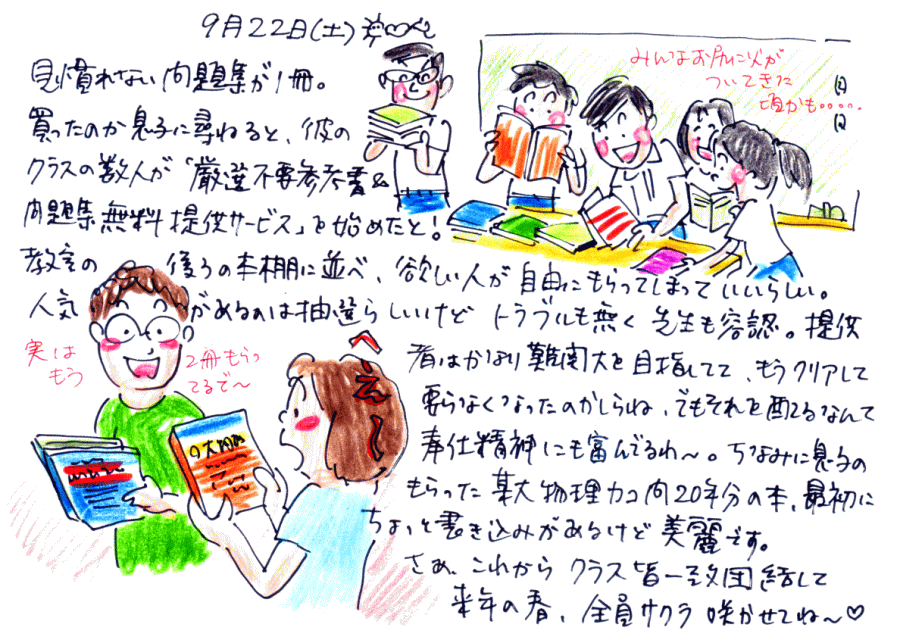 9月22日(土)
見慣れない問題集が1冊。
買ったのか息子に尋ねると、彼の
クラスの数人が「厳選不要参考書&
問題集無料提供サービス」を始めたと!
教室の後ろの本棚に並べ、欲しい人が自由にもらってしまっていいらしい。
人気があるのは抽選らしいけどトラブルも無く先生も容認。提供
者はかなり難関大を目指してて、もうクリアして
要らなくなったのかしらね、でもそれを配るなんて
奉仕精神にも富んでるわ〜。ちなみに息子の
もらった某大物理カコ問20年分の本、最初に
ちょっと書き込みがあるけど美麗です。
さあ、これからクラス皆一致団結して
来年の春、全員サクラ咲かせてね〜♡
みんなお尻に火が
ついてきた
頃かも・・・・・
実は
もう
2冊もらっ
てるで〜
へぇー